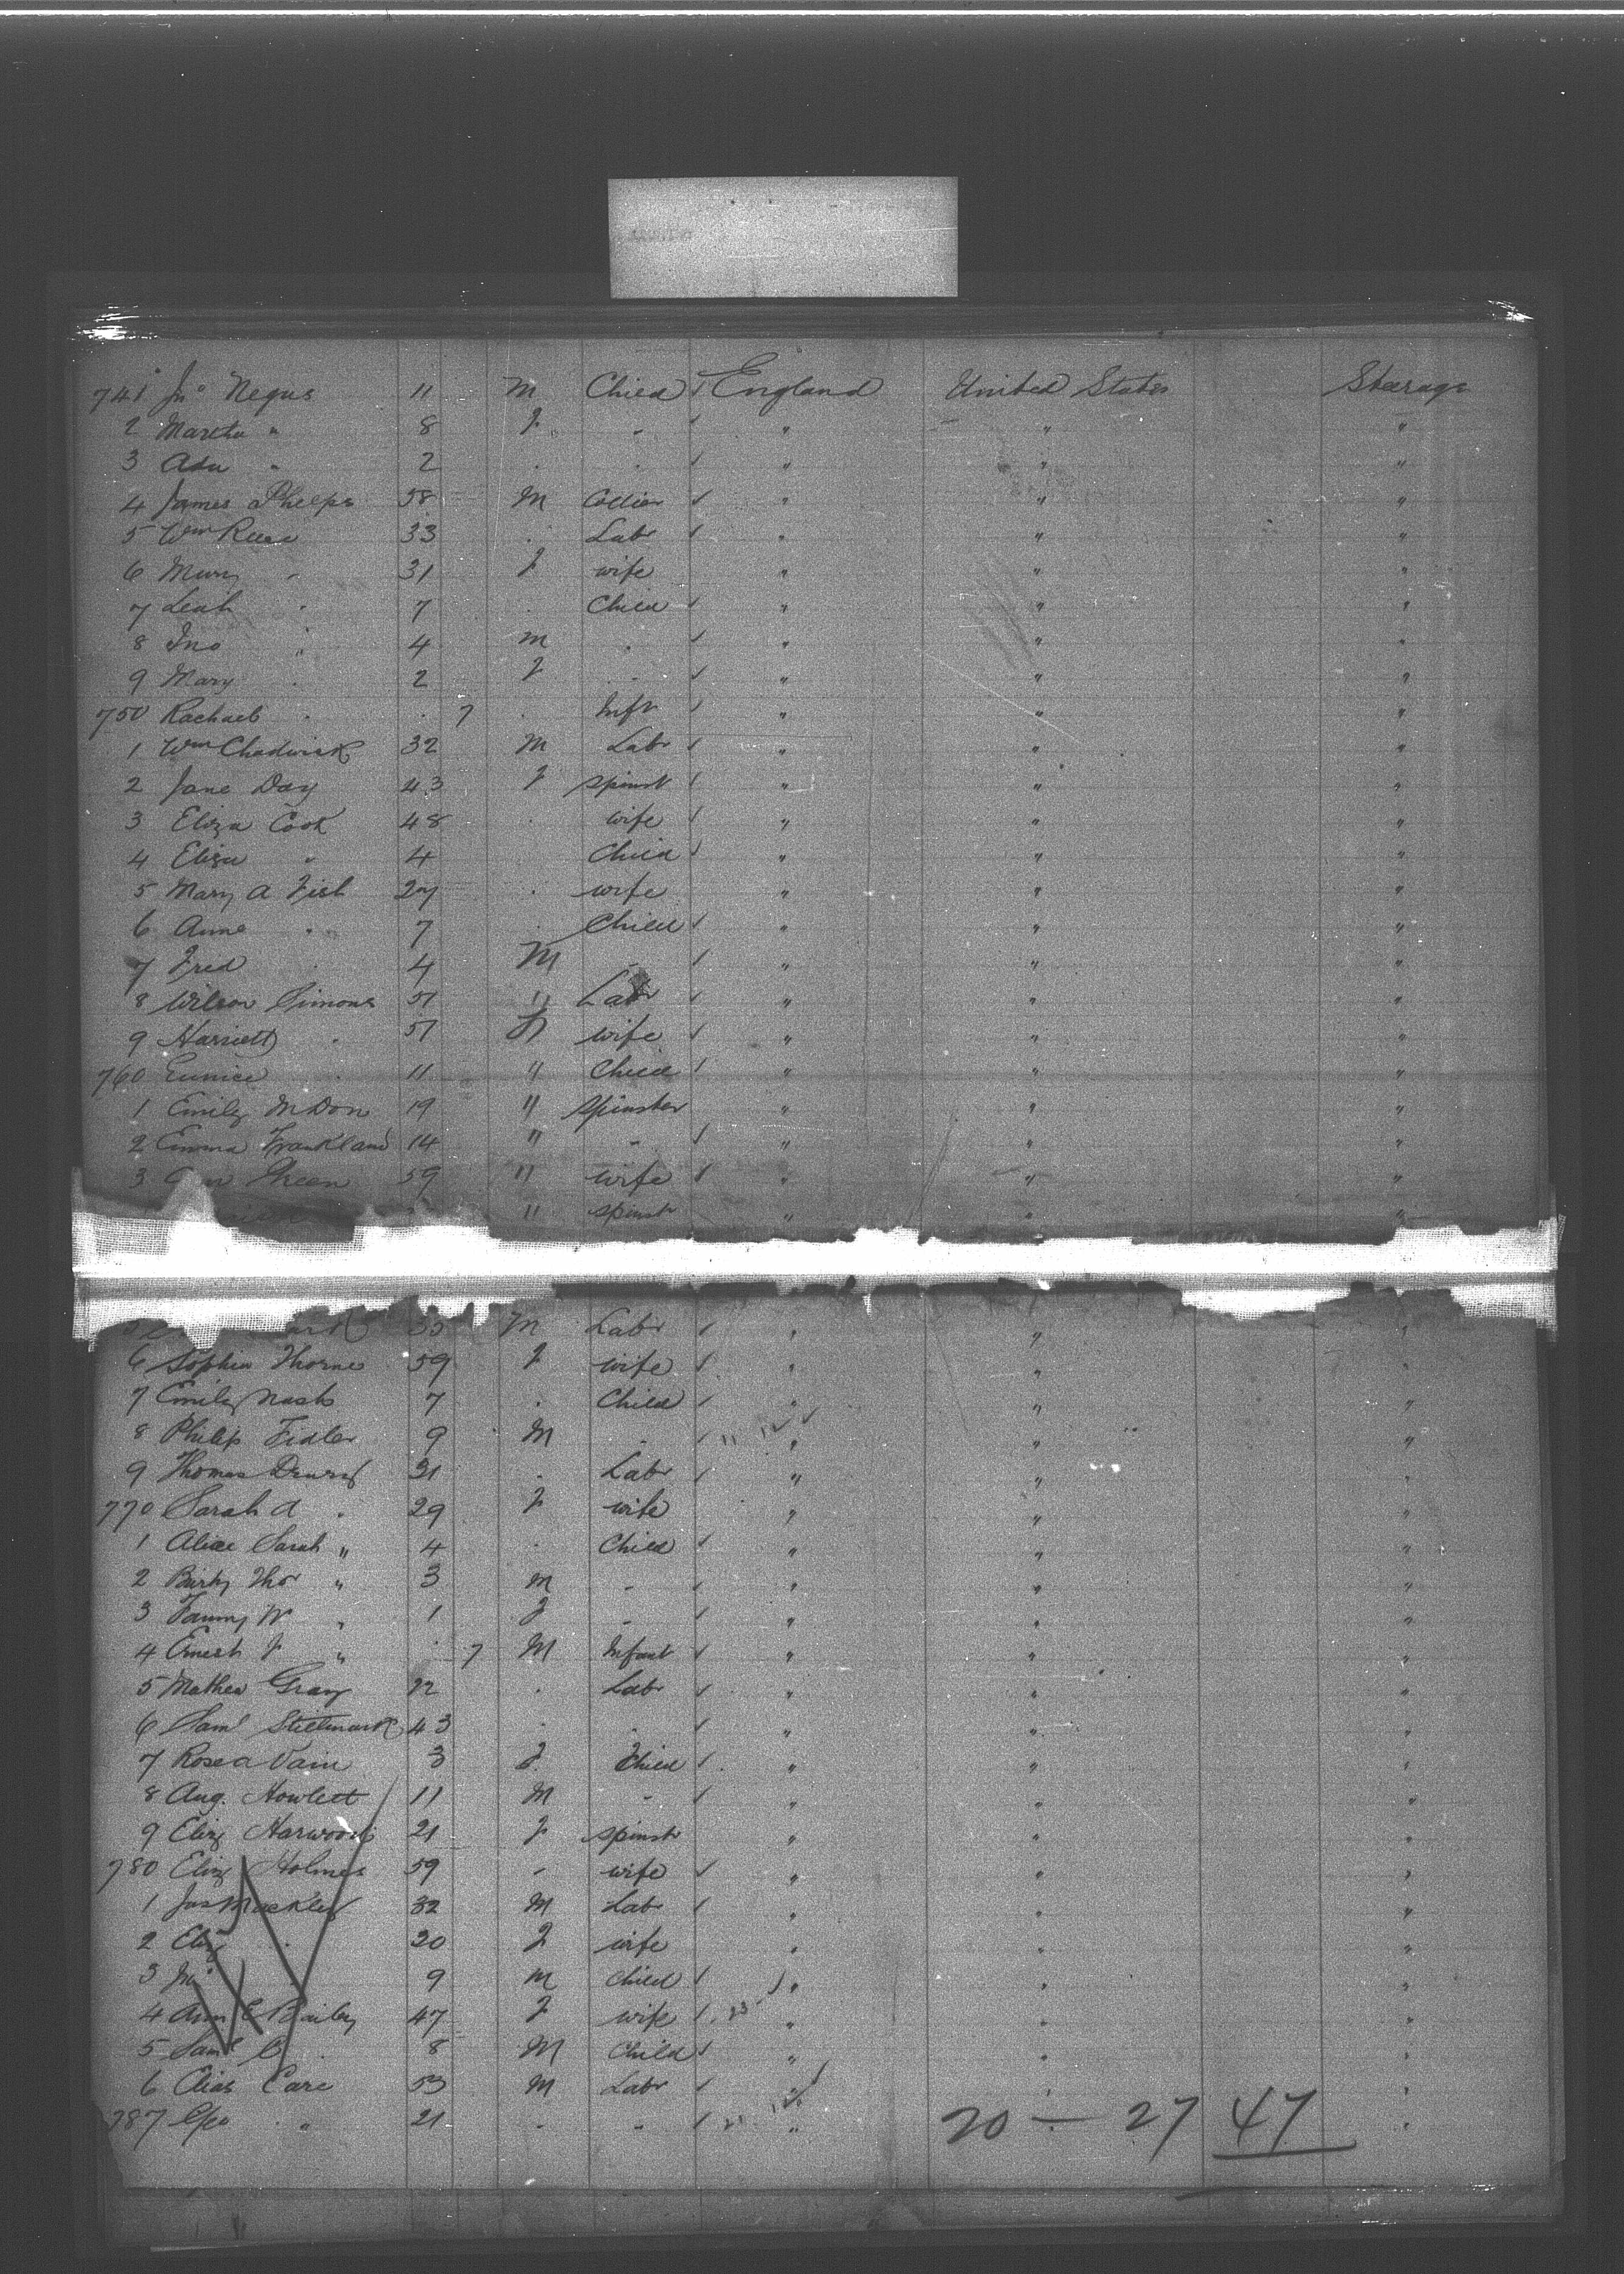 741 Jno Negus 11 M Child √ England United States Steerage
2 Martha " 8 F " √ " " "
3 Ada " 2 " " √ " " "
4 James Phelps 58 M Collier √ " " "
5 Wm Rees 33 " Labr √ " " "
6 Mary " 31 F wife " " "
7 Leah " 7 " Child √ " " "
8 Jno " 4 M " √ " " "
9 Mary " 2 F " √ " " "
750 Rachael " " 7 " Inft √ " " "
1 Wm Chadwick 32 M Labr √ " " "
2 Jane Day 43 F spinst √ " " "
3 Eliza Cook 48 " wife √ " " "
4 Eliza " 4 " Child √ " " "
5 Mary A Fish 27 " wife " " "
6 Anne " 7 " Child √ " " "
7 Fred " 4 M " √ " " "
8 Wilson Simons 51 " Labr √ " " "
9 Harriett " 51 F wife √ " " "
760 Eunice " 11 " Child √ " " "
1 Emily 19 " spinster " " "
2 Emma Frankland 14 " " √ " " "
3 Green 59 " wife √ " " "
" spinst " " "
M Labr √ " " "
6 Sophia Thorne 59 F wife √ " " "
7 Emily Nash 7 " Child √ " " "
8 Philip Fidler 9 M " √ 11 " " "
9 Thomas Drury 31 " Labr √ " " "
770 Sarah A " 29 F wife " " "
1 Alice Sarah " 4 " Child √ " " "
2 Thos " 3 M " √ " " "
3 Fanny W " 1 F " √ " " "
4 Ernest J " " 7 M Infant √ " " "
5 Mathew Gray 22 " Labr √ " " "
6 Saml 43 " " √ " " "
7 Rose a Vain 3 F Child √ " " "
8 Aug. Howlett 11 M " √ " " "
9 Eliz Harwood 21 F spinst " " "
780 Eliz Holmes 59 " wife √ " " "
1 Jas Mackley 32 M Labr √ " " "
2 Eliz " 30 F wife " " "
3 Jno " 9 M Child √ " " "
4 Ann E Bailey 47 F wife √ " " "
5 Saml C " 8 M Child √ " " "
6 Elias Care 53 M Labr √ " " "
787 Geo " 21 " " √ " "
20 — 27 47